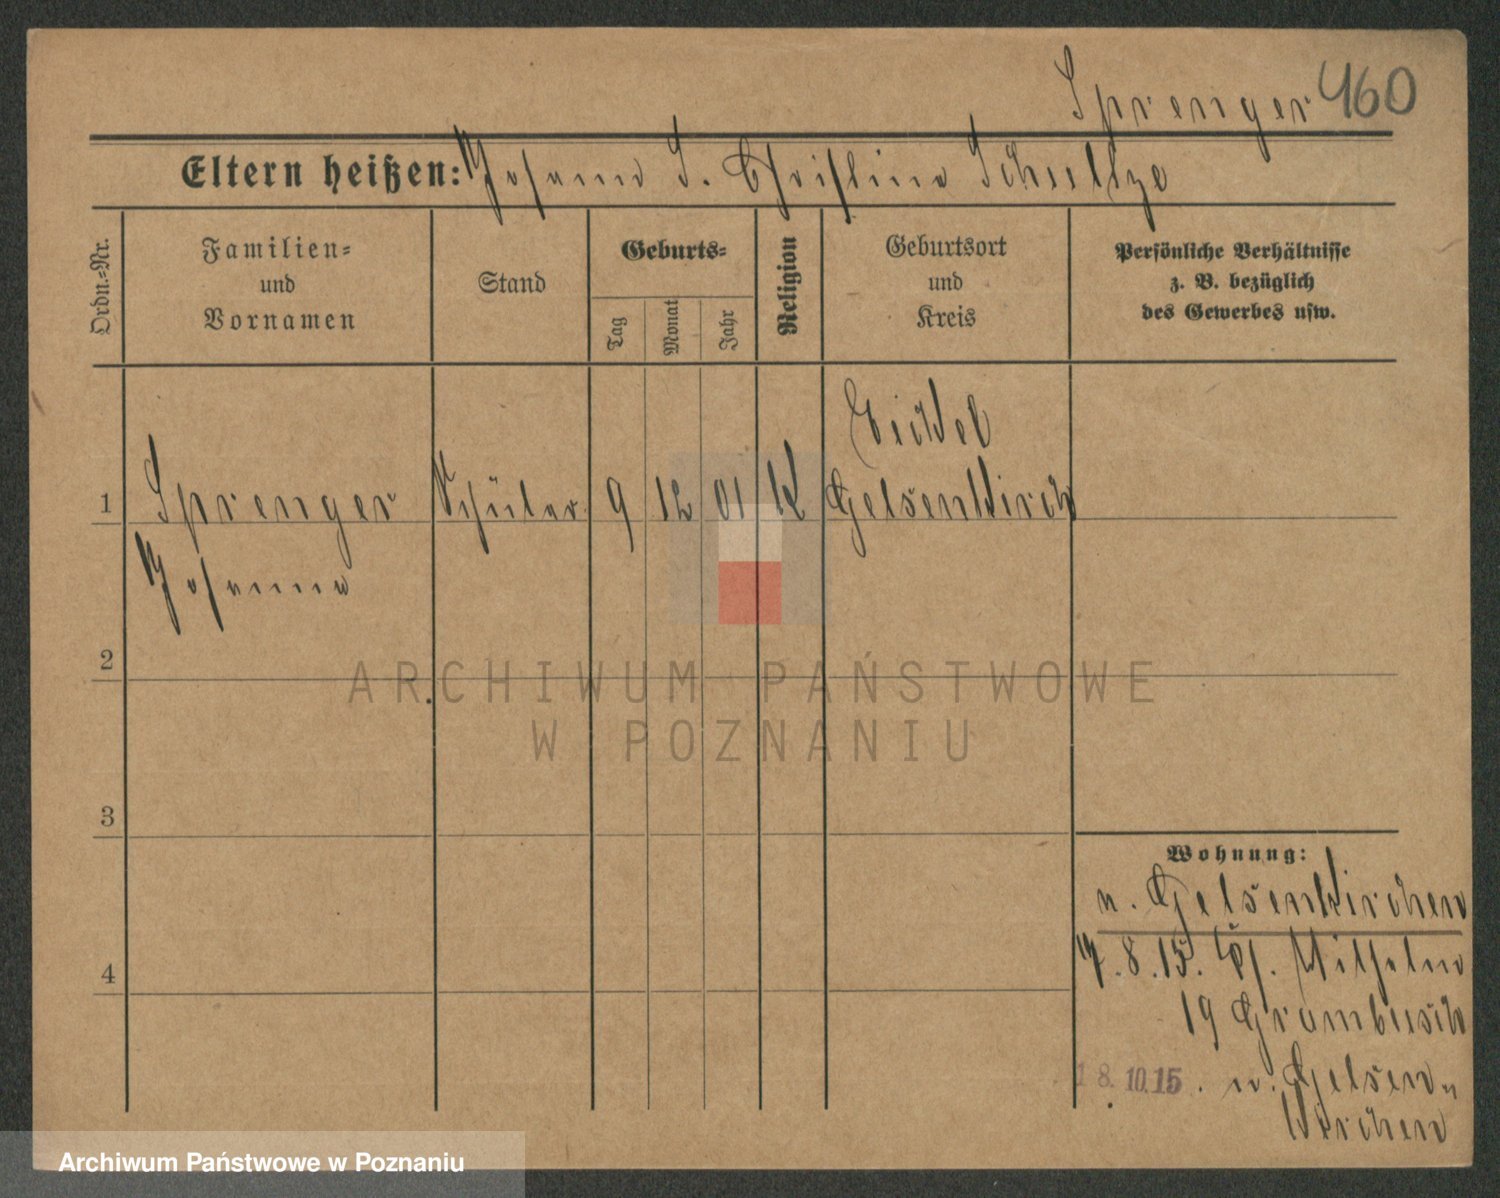 Sprenger 460
Eltern heißen: Johann S. Christina Schultze
Ordn.-Nr.
Familien- und Vornamen
Stand
Geburts-
Tag
Monat
Jahr
Religion
Geburtsort und Kreis
Persönliche Verhältnisse
z. B. bezüglich
des Gewerbes usw.
Eickel
1 Sprenger Schüler 9 12 01 K Gelsenkirch
Johann
2
3
4
Wohnung:
n. Gelsenkirchen
7.8.15. Wilhelm
19 Grambusch
18.10.15. n. Gelsen-
kirchen
ARCHIWUM PAŃSTWOWE
W POZNANIU
Archiwum Państwowe w Poznaniu